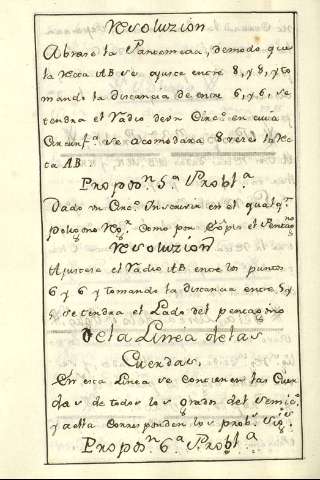 Resoluzion
Abrase la Pantometra, demodo que
la Recta AB se ajuste entre 8, y 8, y to
mando la distancia de entre 6, y 6, se
tendra el Radio deun Circ.º en cuia
Circunf.ª se acomodara 8 vezes la Rec
ta AB
Propos.n 5.ª Probl.ª
Dado un Circ.º Inscrivir en el qualq.r
poligono Reg.r Como por Exp.lo el Pentag.no
Resoluzion
Ajustese el Radio AB entre los puntos
6 y 6 y tomando la distancia entre 5 y
5 se tendra el Lado del pentagono
De la Linea de las
Cuerdas.
En esta Linea se contienen las Cuer
das de todos los grados del semic.º
y a esta corresponden los prob.s sig.s
Propos.n 6.ª Probl.ª